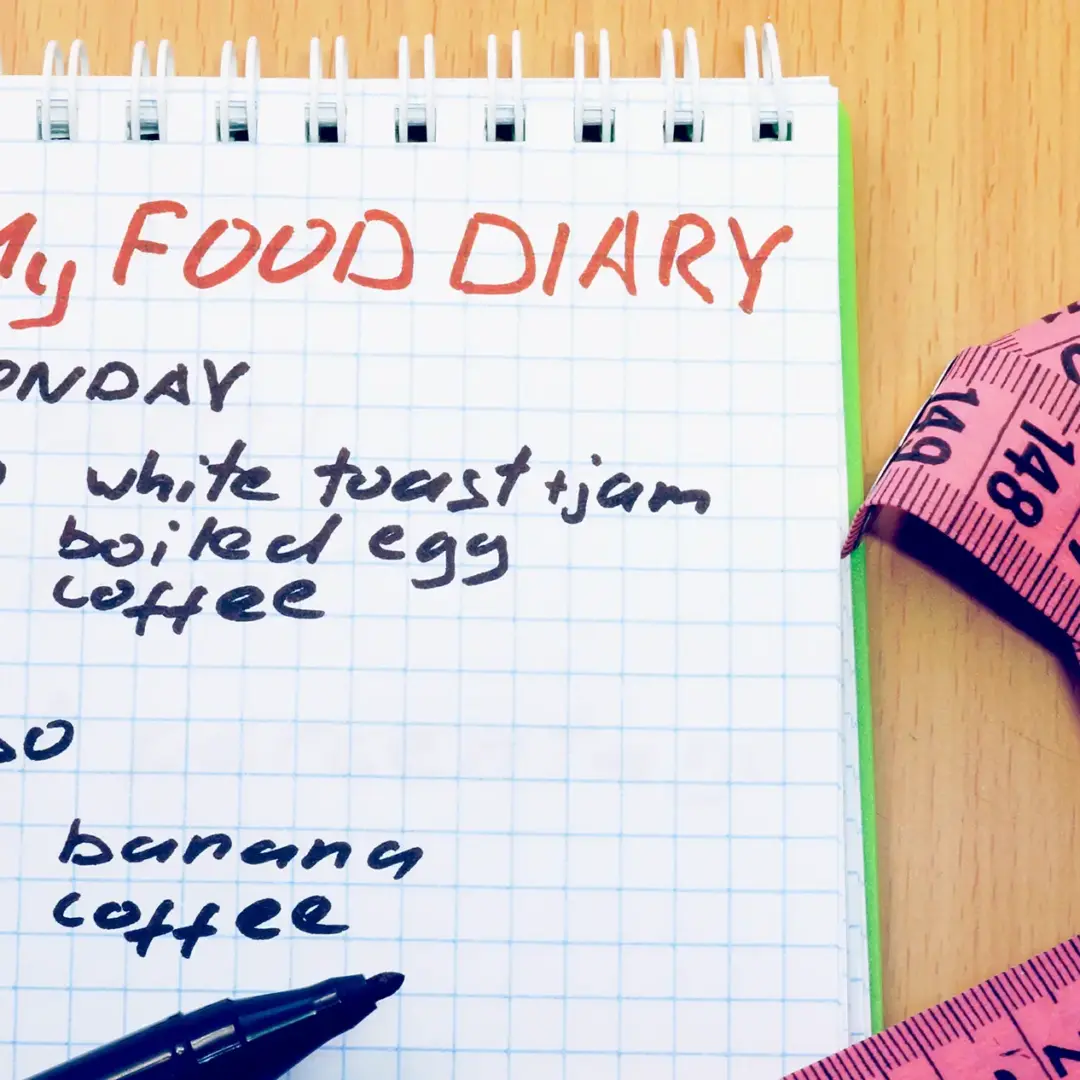 My FOOD DIARY
ONDAY
white toast + jam
boiled egg
coffee
banana
coffee
149
148